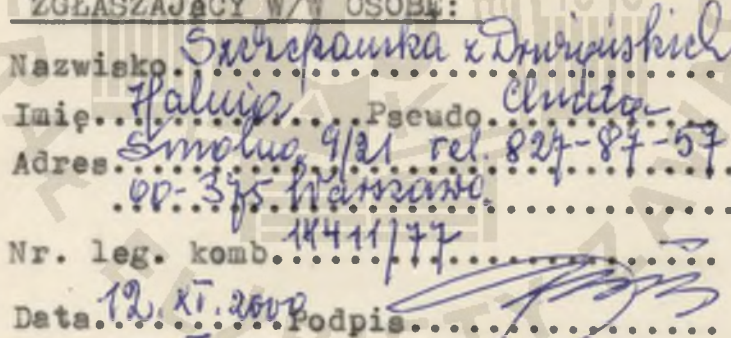 ZGŁASZAJĄCY W/W OSOBĘ:
Nazwisko. Szczepańska z Drwięńskich
Imię. Halina Pseudo. Chuda
Adres. Smolna 9/21 tel. 827-87-57
00-375 Warszawa
Nr. leg. komb. 14411/77
Data. 12.XI.2000 Podpis